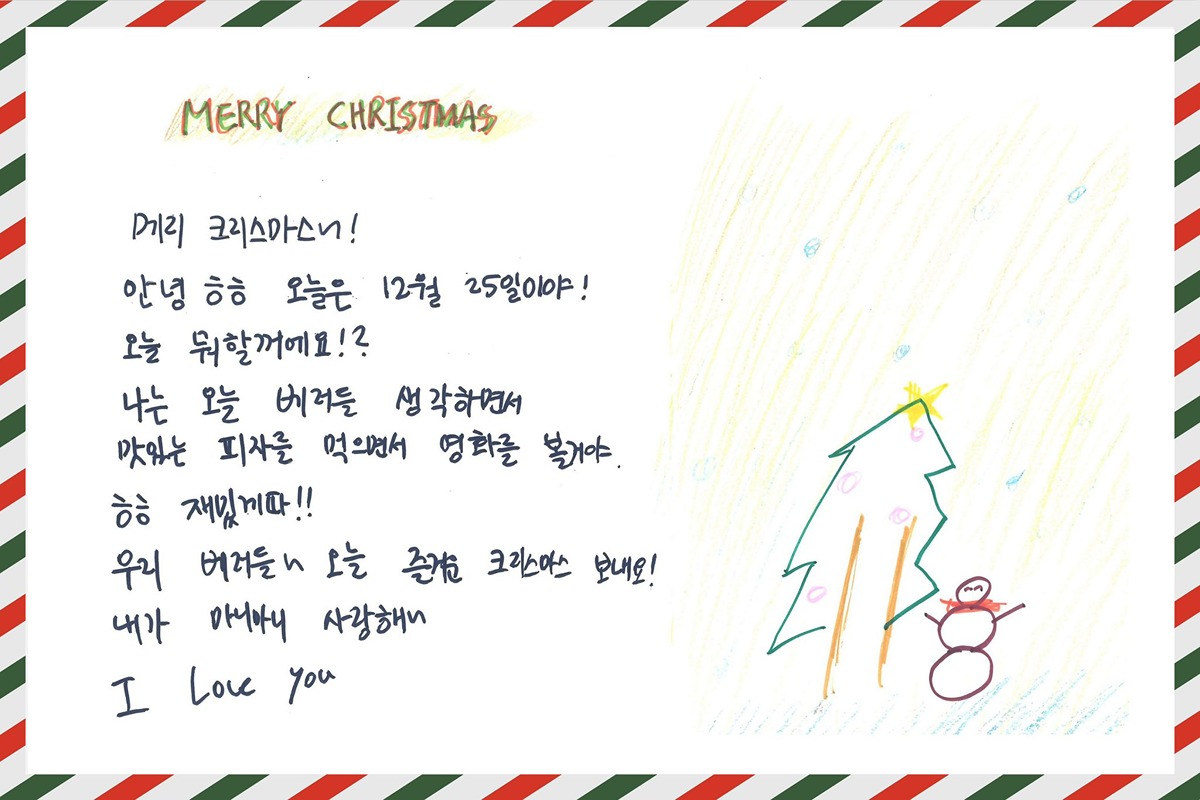 MERRY CHRISTMAS
메리 크리스마스~!
안녕 ㅎㅎ 오늘은 12월 25일이야!
오늘 뭐할꺼에요!?
나는 오늘 베러들 생각하면서
맛있는 피자를 먹으면서 영화를 볼거야.
ㅎㅎ 재밌게따!!
우리 베러들~ 오늘 즐거운 크리스마스 보내요!
내가 마니마니 사랑해~
I Love you